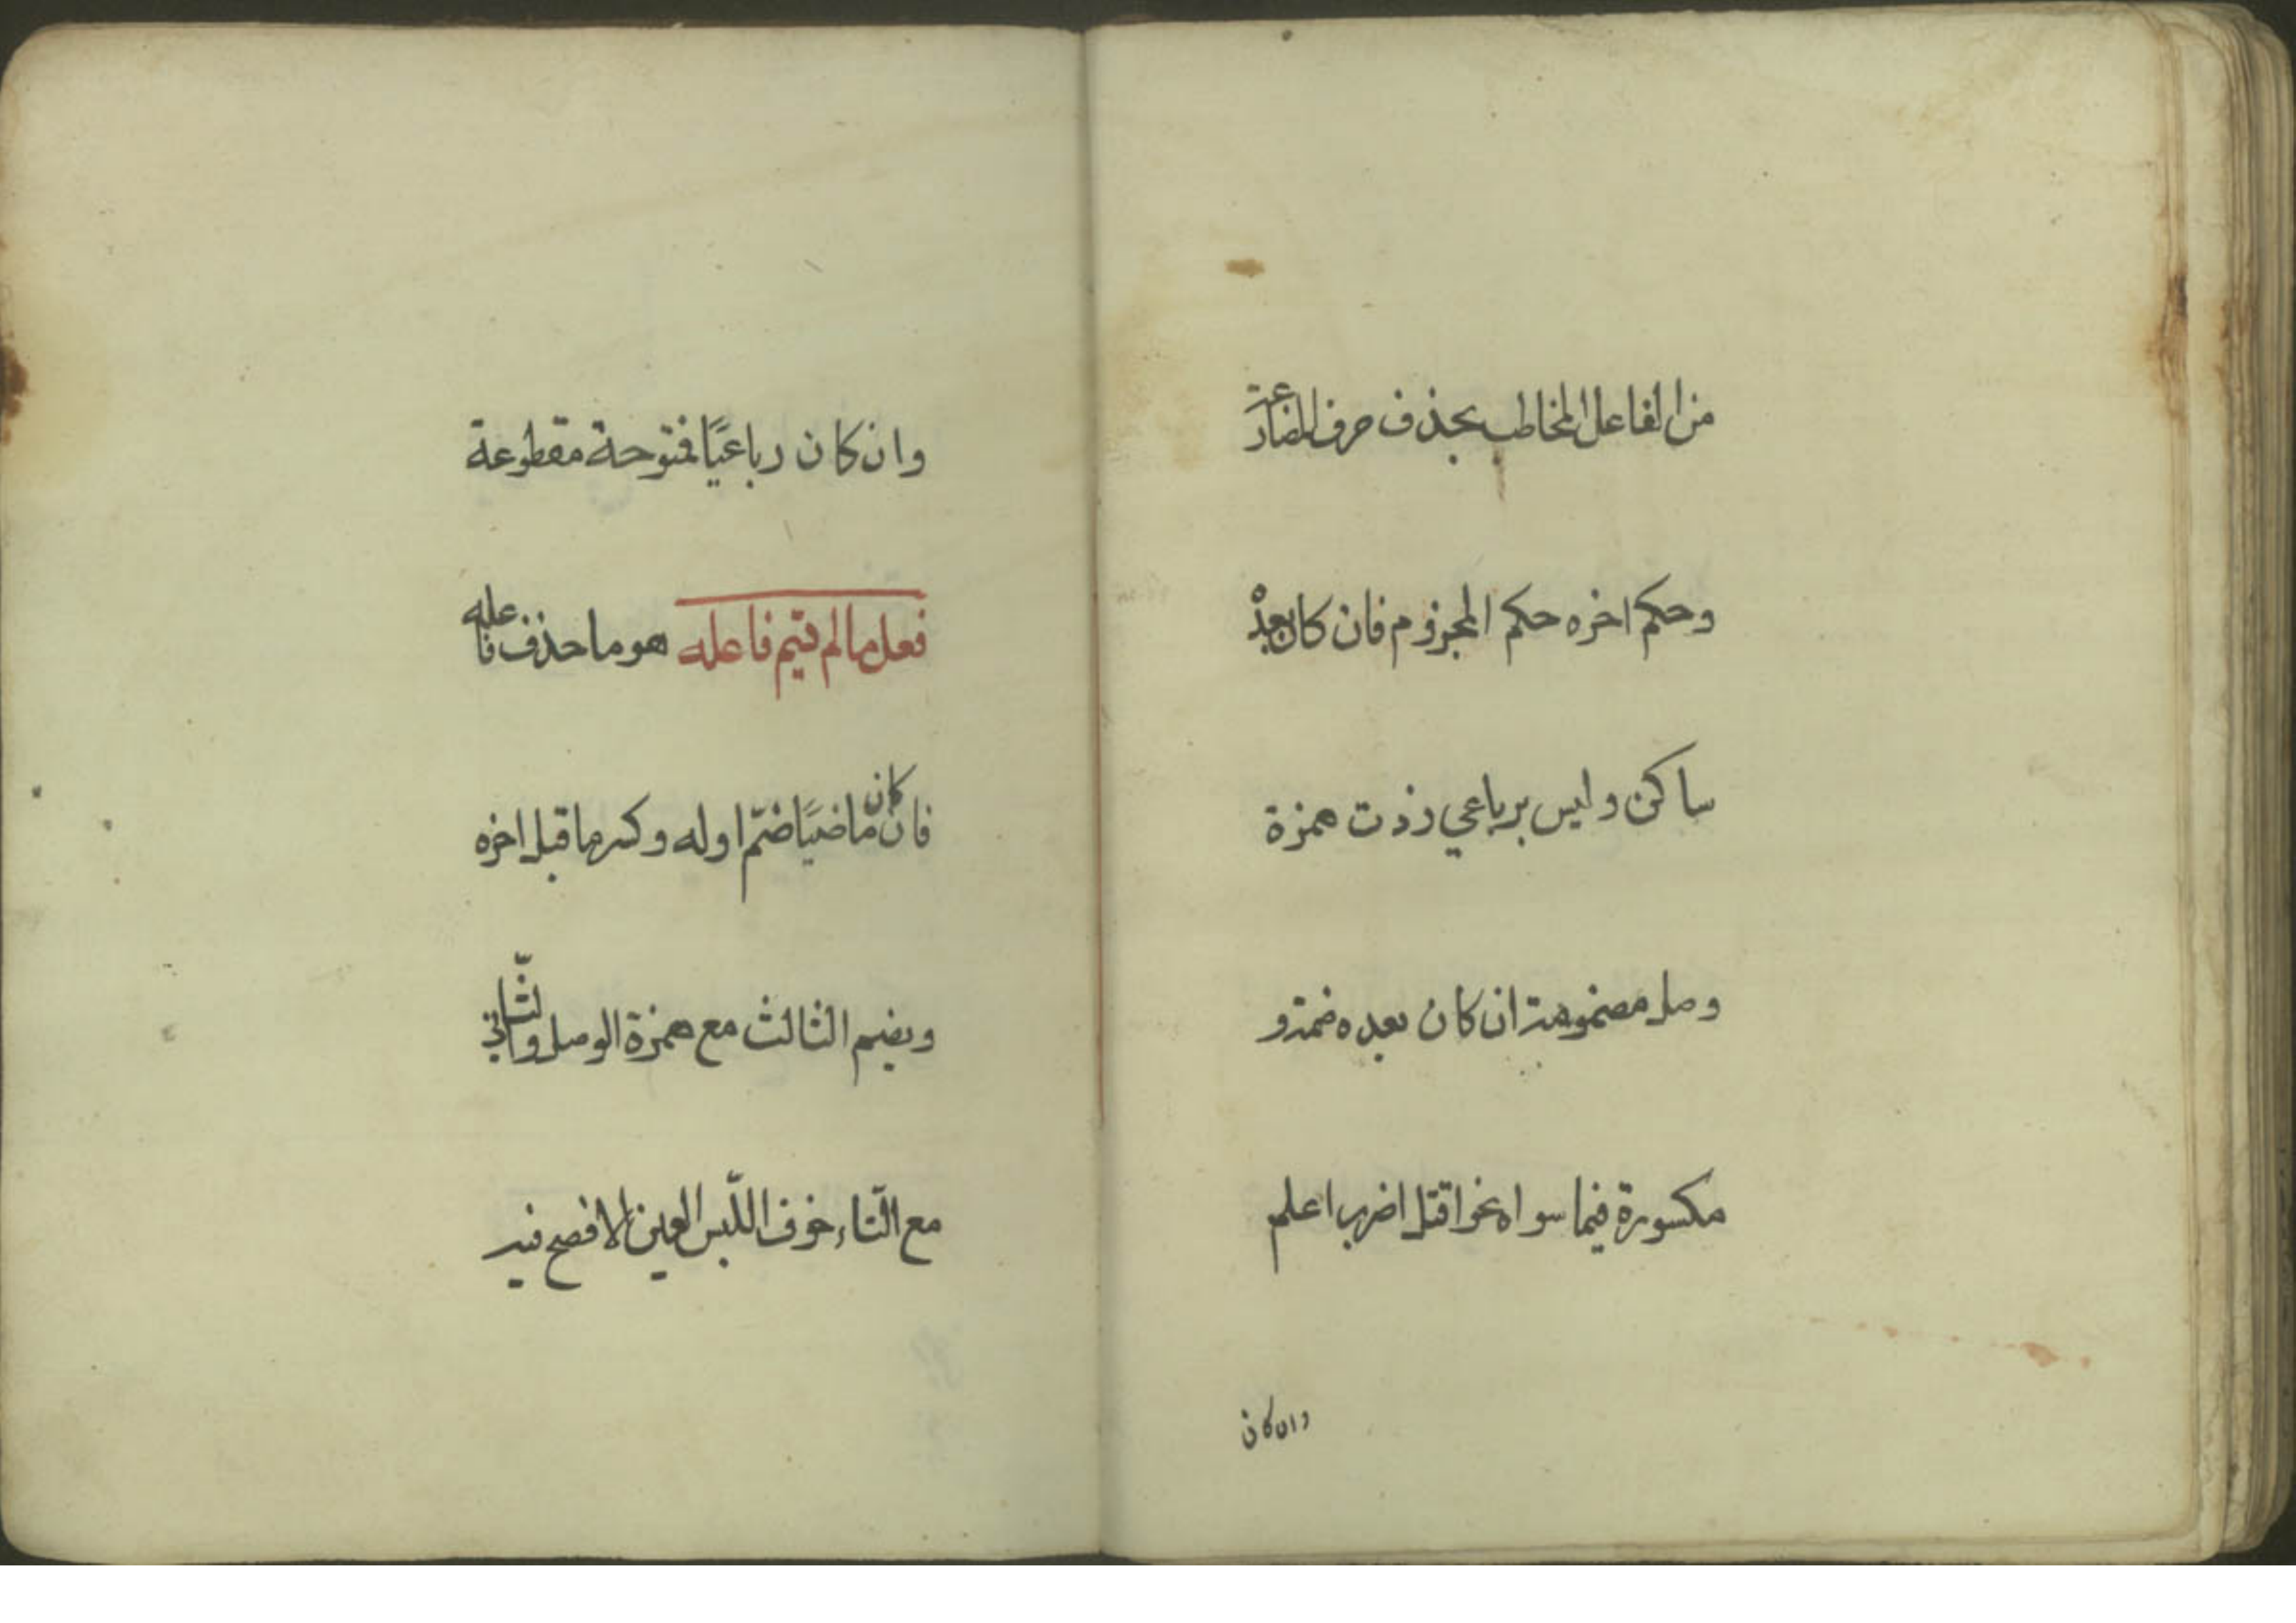 من الفاعل المخاطب بحذف حرف المضارعة
وحكم اخره حكم المجزوم فان كان بعدْ
ساكن وليس برباعي زدت همزة
وصل مضمومة ان كان بعده ضمة و
مكسورة فيما سواه نحو اقتل اضرب اعلم
وان كان
وان كان رباعيًا فمفتوحة مقطوعة
فعل ما لم يتم فاعله هو ما حذف فاعله
فان كان ماضيًا ضمّ اوله وكسر ما قبل اخره
ويضم الثالث مع همزة الوصل والثّاني
مع التّاء خوف اللّبس العين الافصح فيه